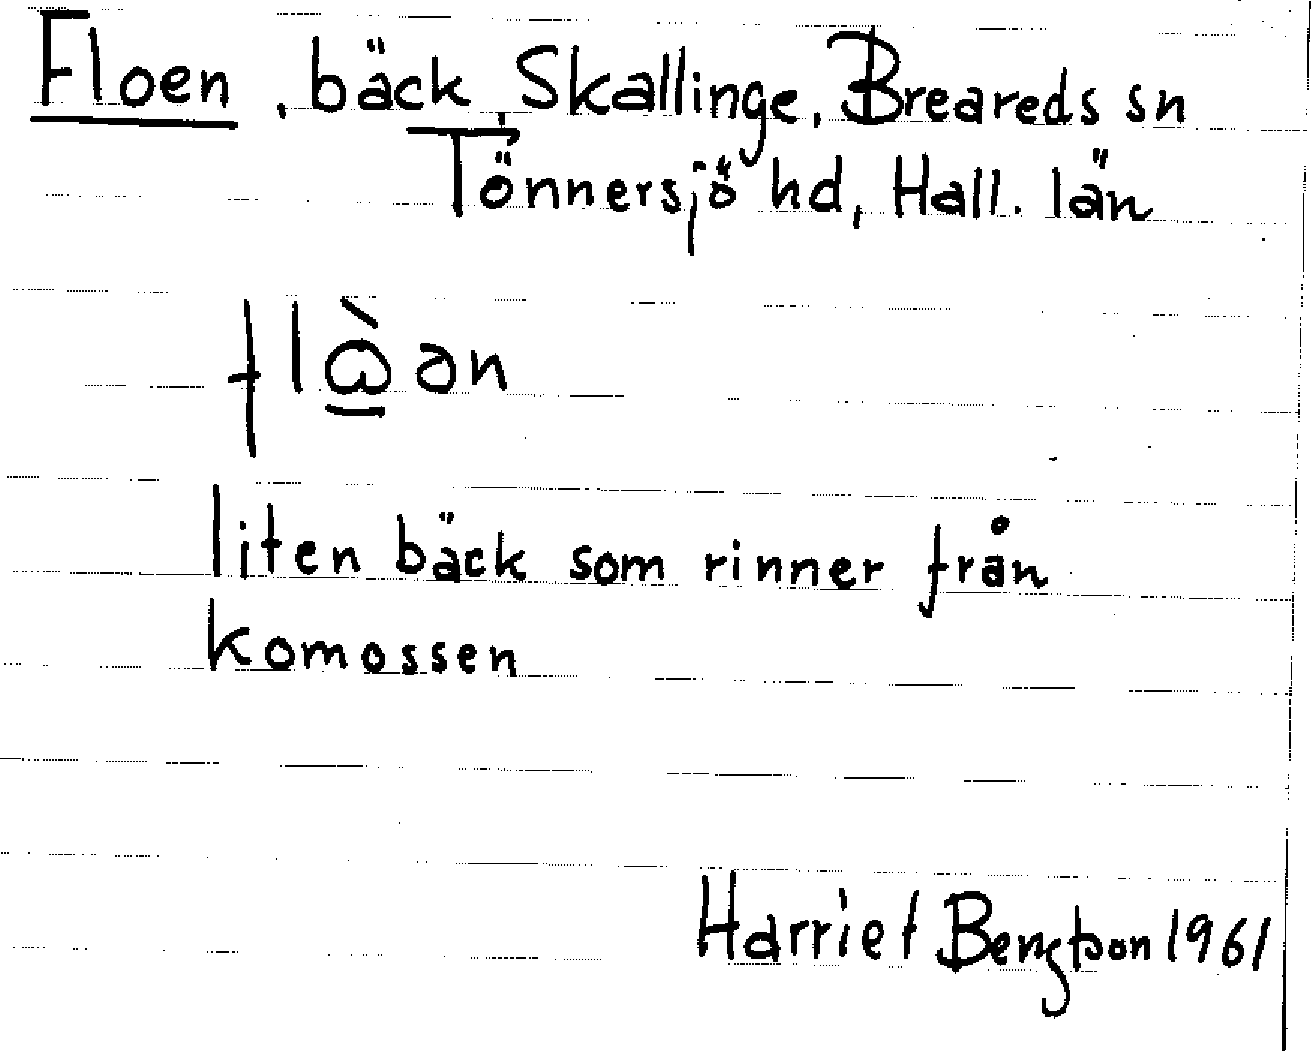 Floen, bäck, Skallinge, Breareds sn
Tönnersjö hd, Hall. län
flὼ̲ən
liten bäck som rinner från
komossen
Harriet Bengtson 1961